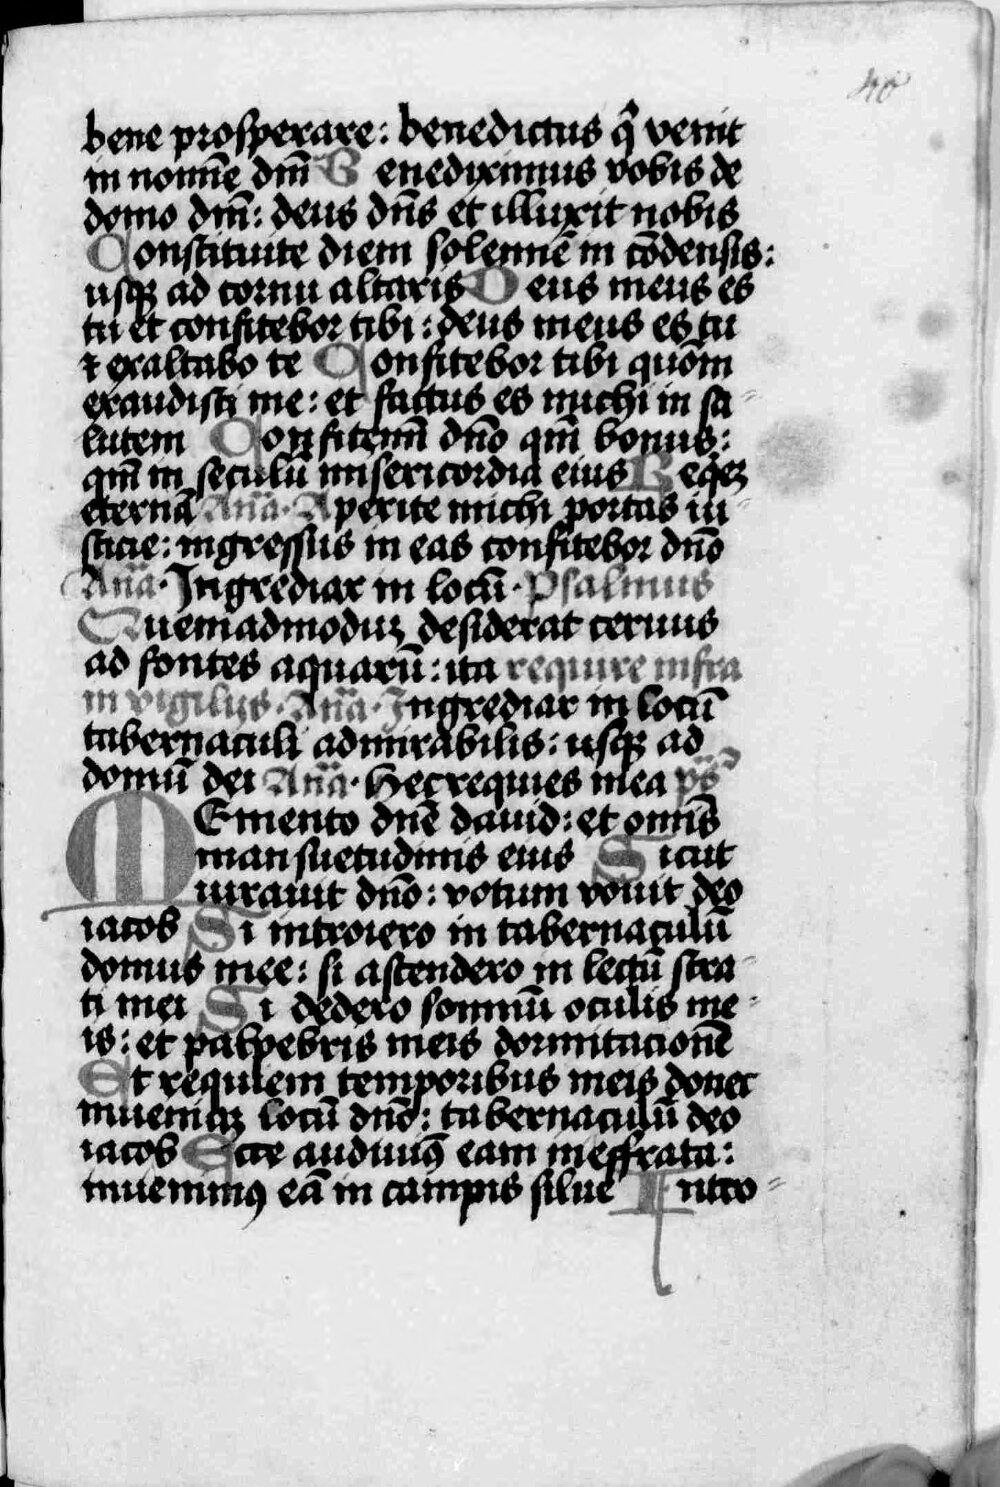 40
bene prosperare: benedictus q̄ venit
in noīe dn̄i Benediximus vobis de
domo dn̄i: deus dn̄s et illuxit nobis
Constituite diem solennē in cōdensis:
usq̨ ad cornu altaris Deus meus es
tu et confitebor tibi: deus meus es tu
⁊ exaltabo te Confitebor tibi quōm
exaudisti me: et factus es michi in sa⸗
lutem Confitemī dn̄o qm̄ bonus:
qm̄ in seculū misericordia eius Reqꝫ
eternā Añā. Aperite michi portas iu⸗
sticie: ingressus in eas confitebor dn̄o
Añā. Ingrediar in locū. Psalmus
Quemadmoduꝫ desiderat cervus
ad fontes aquarū: ita require infra
in vigilijs. Añā. Ingrediar in locū
tabernaculi admirabilis: usq̨ ad
domū dei Añā. Hec requies mea p̄s
MEmento dn̄e david: et omīs
mansuetudinis eius Sicut
iuravit dn̄o: votum vovit deo
iacob Si introiero in tabernaculū
domus mee: si ascendero in lectū stra⸗
ti mei Si dedero somnū oculis me⸗
is: et palpebris meis dormitacionē
Et requiem temporibus meis donec
inueniaꝫ locū dn̄o: tabernaculū deo
iacob Ecce audiuim᷒ eam in effrata:
inuenimꝰ eā in campis silue Intro⸗